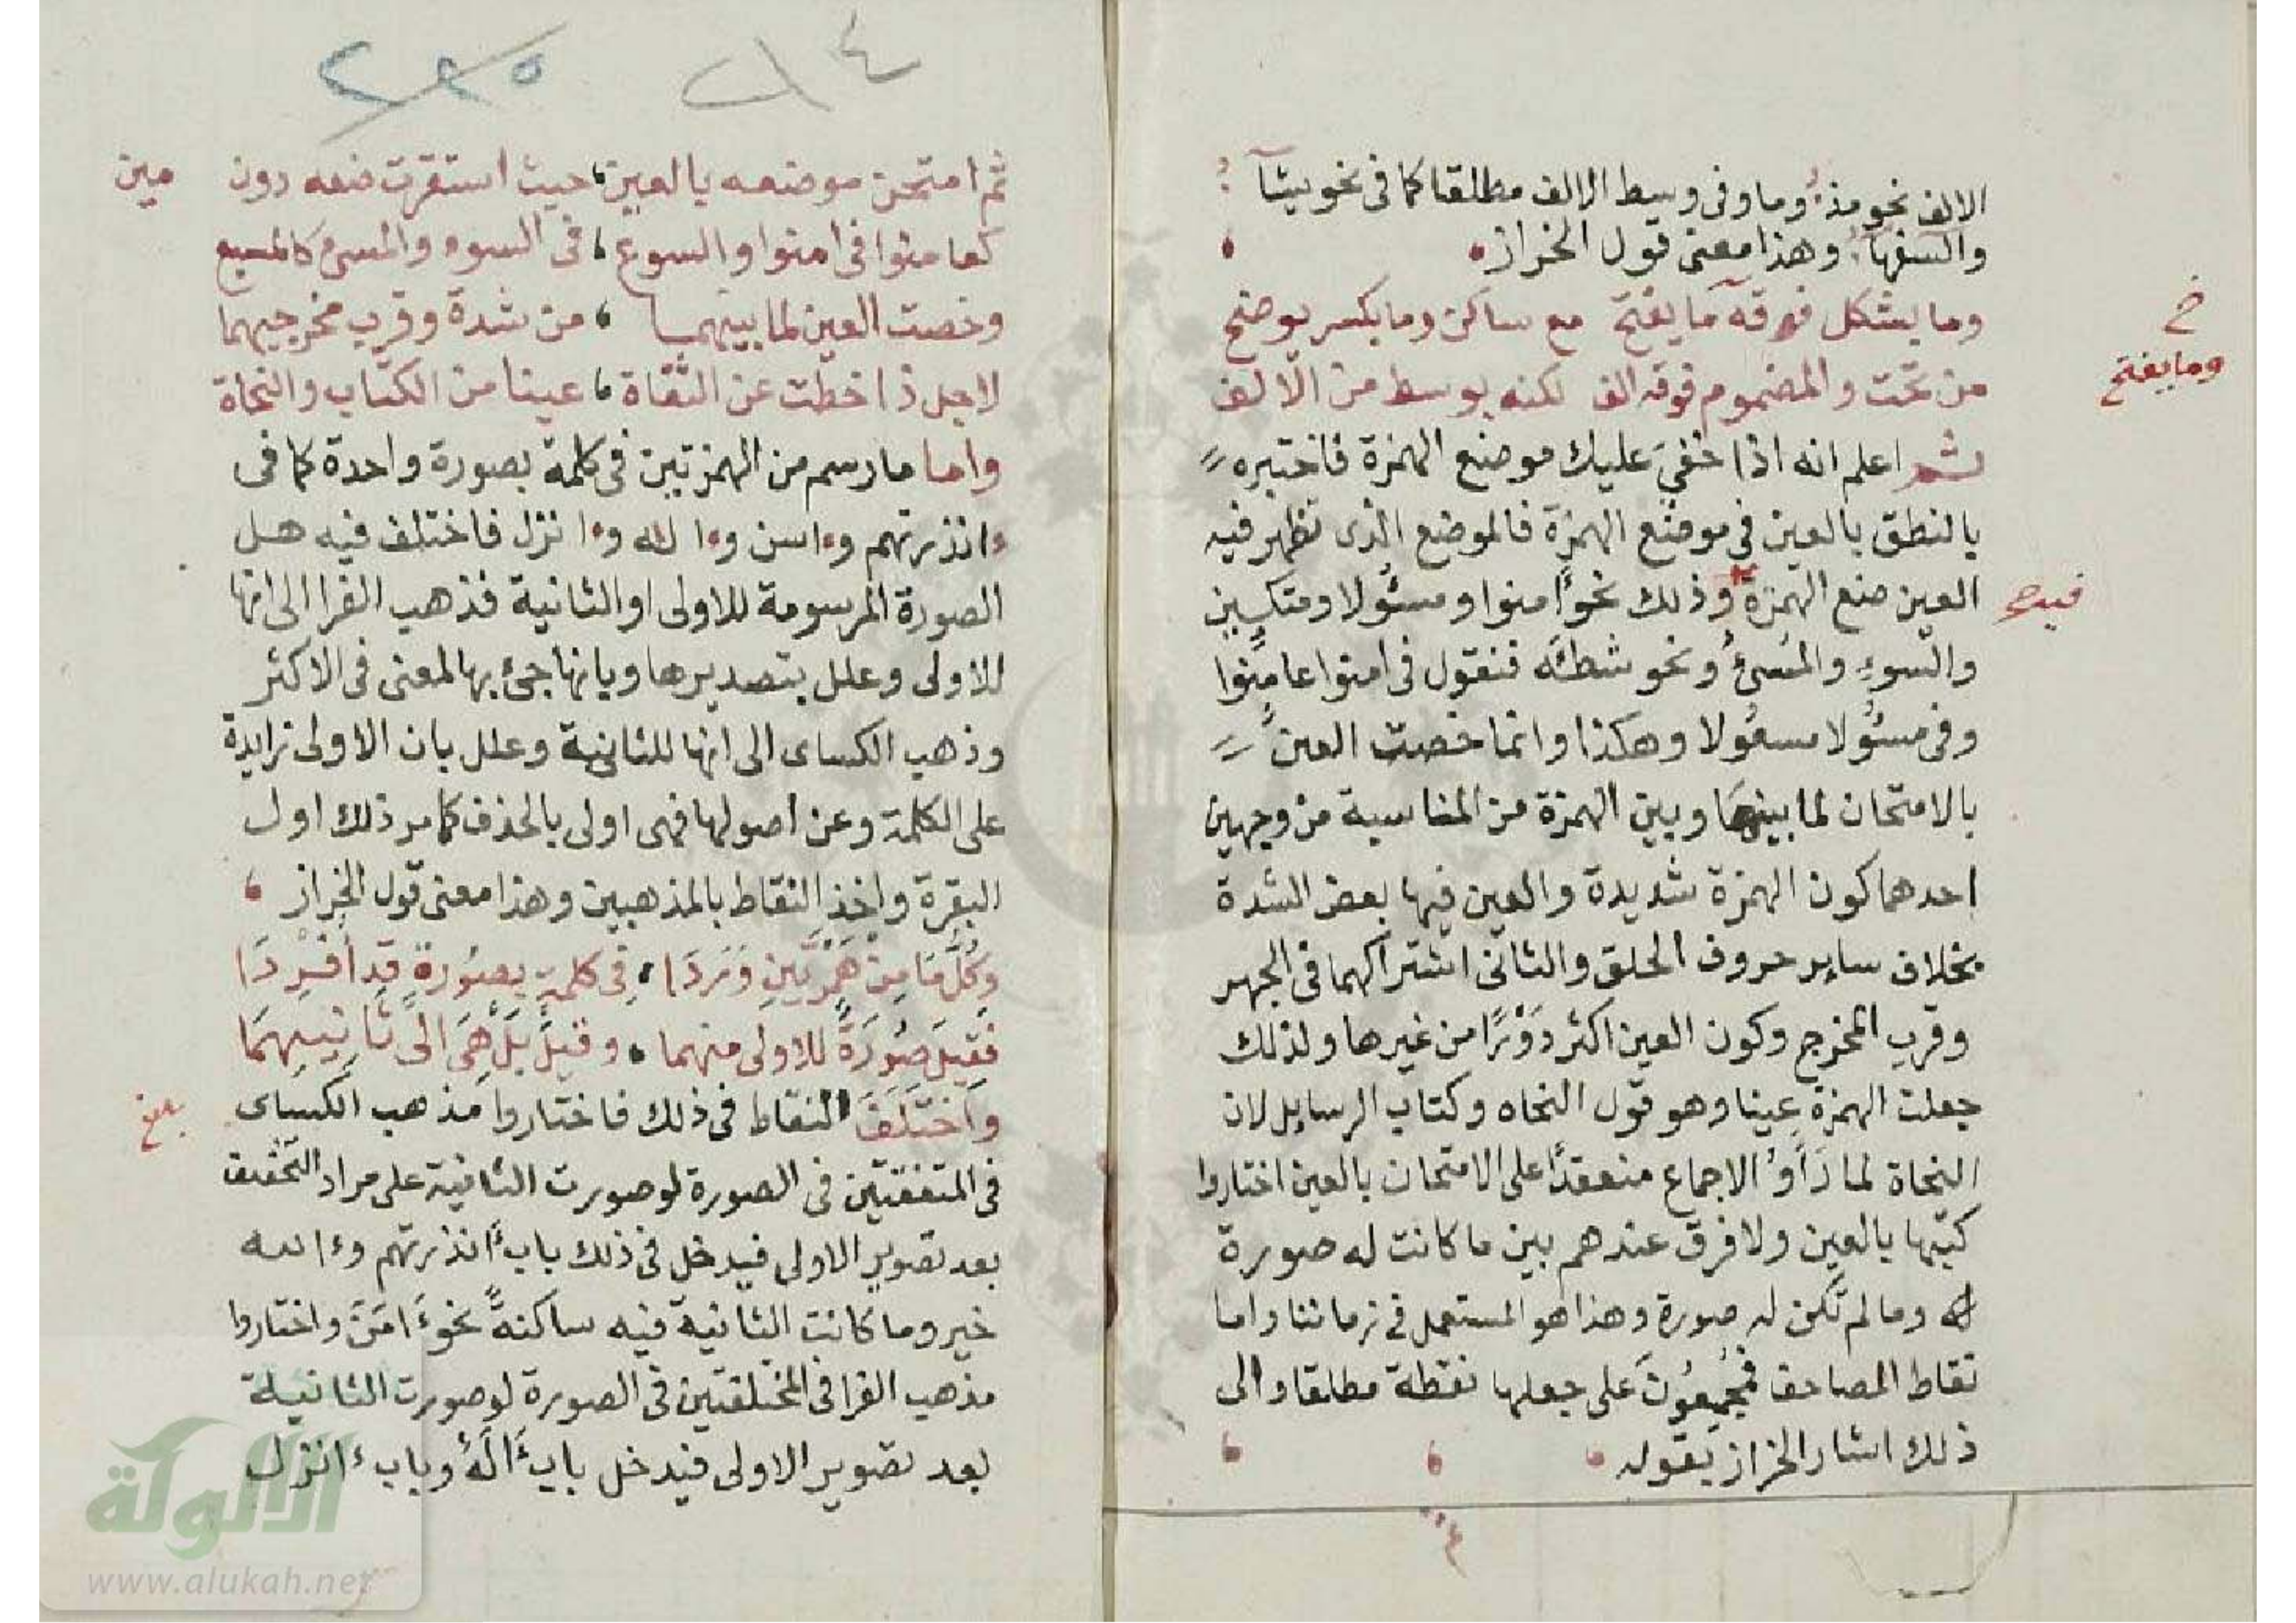 الالف نحو مذءوما وفى وسط الالف مطلقا كما فى نحو يشآء
والسفهآء وهذا معنى قول الخراز
وما يشكل فوقه ما يفتح مع ساكن وما يكسر يوضح
خ
وما يفتح
من تحت والمضموم فوقه الف لكنه بوسط من الالف
ثم اعلم انه اذا خفي عليك موضع الهمزة فاختبره
بالنطق بالعين فى موضع الهمزة فالموضع الذى تظهر فيه
العين ضع الهمزة وذلك نحو ءامنوا ومسئولا ومتكـين
فيه
والسوء والمسئ ونحو شطئه فنقول فى امنوا عامنوا
وفى مسئولا مسعولا وهكذا وانما خصت العين
بالامتحان لما بينها وبين الهمزة من المناسبة من وجهين
احدهما كون الهمزة شديدة والعين فيها بعض الشدة
بخلاف ساير حروف الحلق والثانى اشتراكهما فى الجهر
وقرب المخرج وكون العين اكثر دورًا من غيرها ولذلك
جعلت الهمزة عينا وهو قول النحاه وكتاب الرسايل لان
النحاة لما رَأَوُا الاجماع منعقدًا على الامتحان بالعين اختاروا
كتبها بالعين ولا فرق عندهم بين ما كانت له صورة
له وما لم تكن له صورة وهذا هو المستعمل فى زماننا واما
نقاط المصاحف فمجمعون على جعلها نقطة مطلقا والى
ذلك اشار الخراز بقوله
ثم امتحن موضعه بالعين حيث استقرت ضعه دون مين
كعامنوا فى امنوا والسوع فى السوء والمسىء كالمسيع
وخصت العين لما بينهما من شدة وقرب مخرجيهما
لاجل ذا خطت عن الثقاة عينا من الكتاب والنحاة
واما ما رسم من الهمزتين فى كلمة بصورة واحدة كما فى
ءانذرتهم وءاسن وءاله وءانزل فاختلف فيه هل
الصورة المرسومة للاولى او الثانية فذهب الفرا الى انها
للاولى وعلل بتصديرها وبانها جئ بها لمعنى فى الاكثر
وذهب الكساى الى انها للثانية وعلل بان الاولى زايدة
على الكلمة وعن اصولها فهى اولى بالحذف كما مر ذلك اول
البقرة واخذ النقاط بالمذهبين وهذا معنى قول الخراز
وَكُلُّ مَا مِنْ هَمْزَتَيْنِ وَرَدَا فِى كلمةٍ بصورةٍ قد أفردَا
فقيل صورة للاولى منهما وقيل بل هى الى ثانيهما
واختلف النقاط فى ذلك فاختاروا مذهب الكساى
بلغ
فى المتفقتين فى الصورة لو صورت الثانية على مراد التخفيف
بعد تصوير الاولى فيدخل فى ذلك باب ءانذرتهم وءالله
خير وما كانت الثانية فيه ساكنةً نحو ءَامَنَ واختاروا
مذهب الفرا فى المختلفتين فى الصورة لو صورت الثانية
بعد تصوير الاولى فيدخل باب ءَالَهٌ وباب ءانزل
الألوكة
www.alukah.net